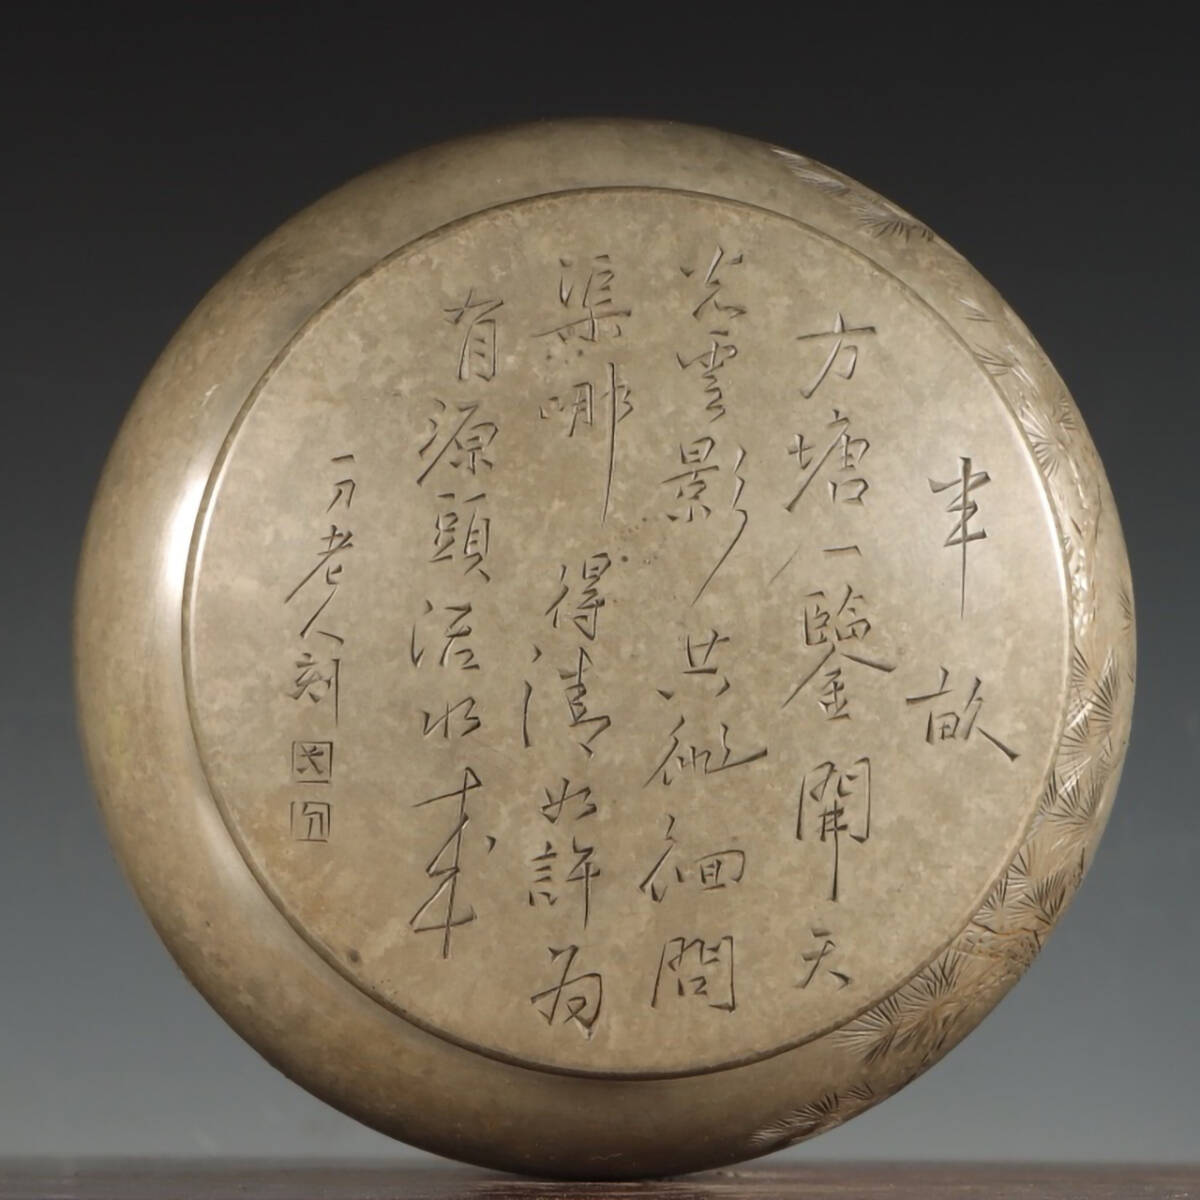 半畝
方塘一鑒開天
光雲影共徘徊問
渠哪得清如許為
有源頭活水來
一刀老人刻